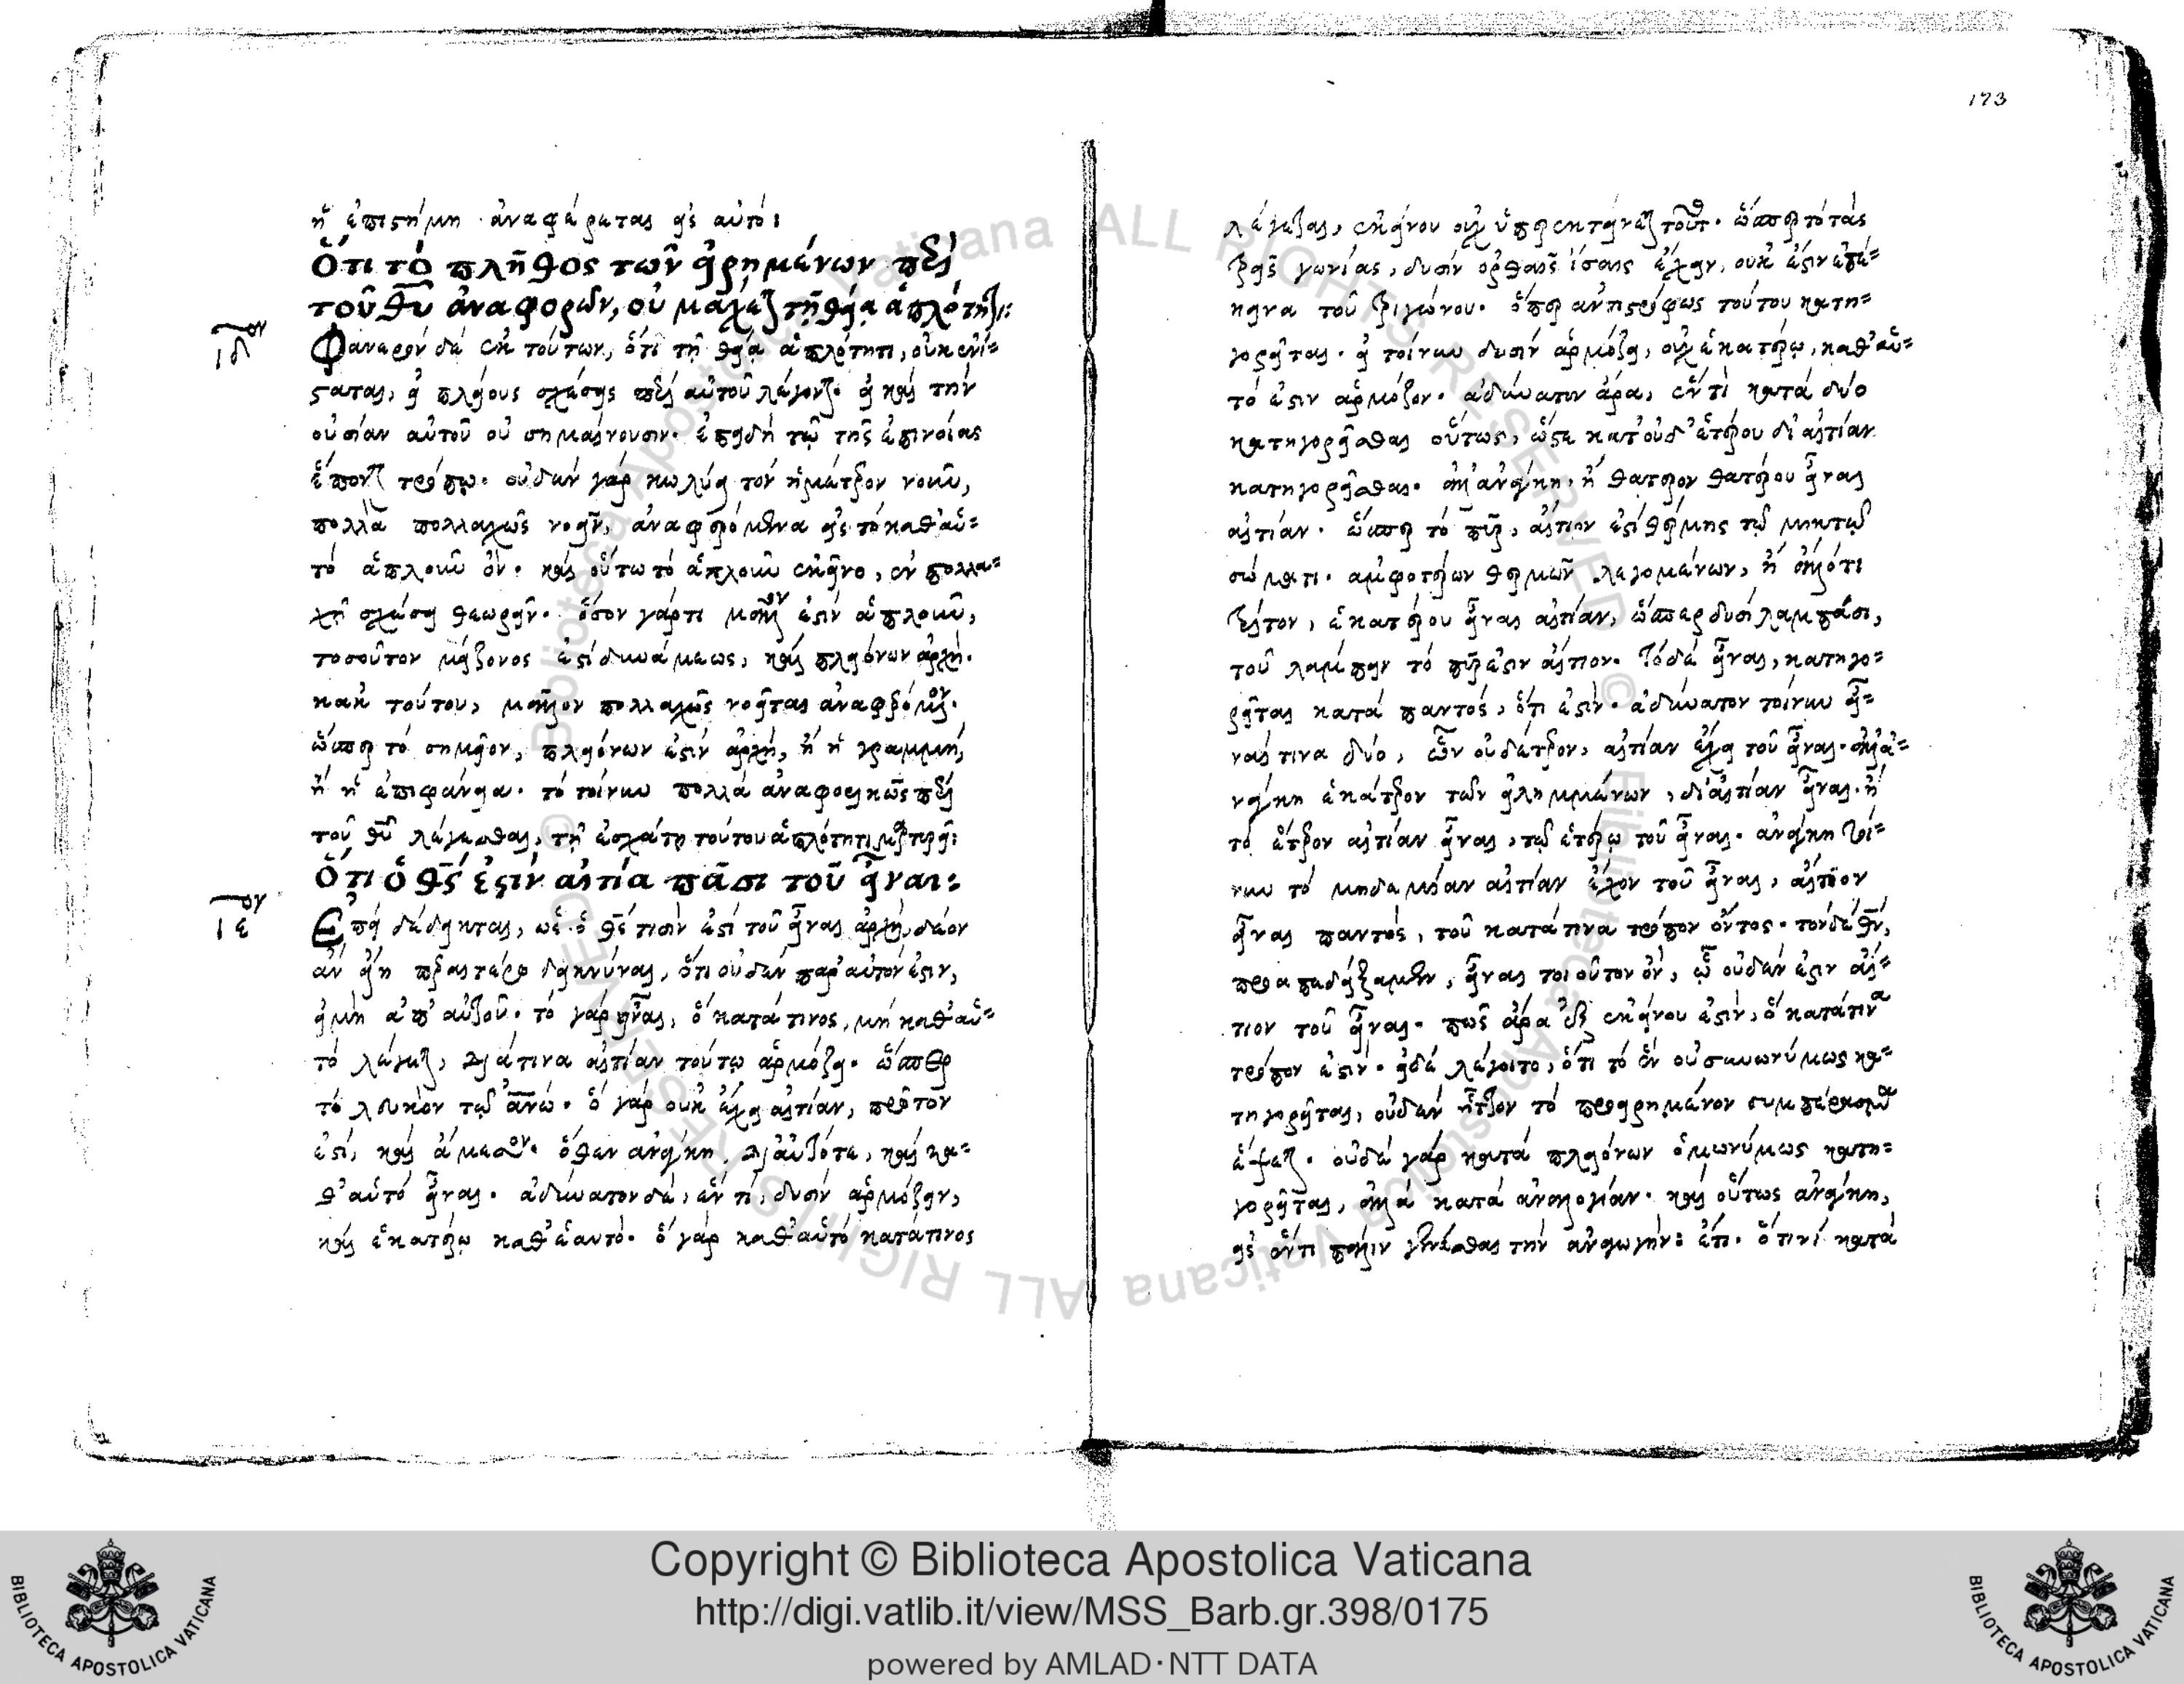 ἡ ἐπιστήμη ἀναφέρεται εἰς αὐτό:
Ὅτι τὸ πλῆθος τῶν εἰρημένων περὶ
τοῦ θυ ἀναφορῶν, οὐ μάχεται τῇ θείᾳ ἁπλότητι:
ιδον
Φανερὸν δὲ ἐκ τούτων, ὅτι τῇ θείᾳ ἁπλότητι, οὐκ ἐνί-
σταται, εἰ πλείους σχέσεις περὶ αὐτοῦ λέγονται. εἰ καὶ τὴν
οὐσίαν αὐτοῦ οὐ σημαίνουσιν. ἐπειδὴ τῷ τῆς ἐπινοίας
ἕπονται τρόπῳ. οὐδὲν γὰρ κωλύει τὸν ἡμέτερον νοῦν,
πολλὰ πολλαχῶς νοεῖν, ἀναφερόμενα εἰς τὸ καθ' αὑ-
τὸ ἁπλοῦν ὄν. καὶ οὕτω τὸ ἁπλοῦν ἐκεῖνο, ἐν πολλα-
χῇ σχέσει θεωρεῖν. ὅσον γάρ τι μᾶλλον ἐστὶν ἁπλοῦν,
τοσοῦτον μείζονος ἐστὶ δυνάμεως, καὶ πλειόνων ἀρχή.
κἀκ τούτου, μᾶλλον πολλαχῶς νοεῖται ἀναφερόμενον.
ὥσπερ τὸ σημεῖον, πλειόνων ἐστὶν ἀρχή, ἢ ἡ γραμμή,
ἢ ἡ ἐπιφάνεια. τὸ τοίνυν πολλὰ ἀναφορικῶς περὶ
τοῦ θυ λέγεσθαι, τῇ ἐσχάτῃ τούτου ἁπλότητι μαρτυρεῖ:
Ὅτι ὁ θς ἐστὶν αἰτία πᾶσι τοῦ εἶναι:
ιεον
Ἐπεὶ δέδεικται, ὡς ὁ θς τισὶν ἐστὶ τοῦ εἶναι ἀρχή, δέον
ἂν εἴη περαιτέρω δεικνύναι, ὅτι οὐδὲν παρ' αὐτόν ἐστιν,
εἰ μὴ ἀπ' αὐτοῦ. τὸ γὰρ εἶναι, ὃ κατά τινος, μὴ καθ' αὑ-
τὸ λέγεται, διά τινα αἰτίαν τούτῳ ἁρμόζει. ὥσπερ
τὸ λευκὸν τῷ ἀνω. ὃ γὰρ οὐκ ἔχει αἰτίαν, πρῶτον
ἐστὶ, καὶ ἄμεσον. ὅθεν ἀνάγκη, δι' αὐτό τε, καὶ κα-
θ' αὑτὸ εἶναι. ἀδύνατον δὲ, ἕν τι, δυσὶν ἁρμόζειν,
καὶ ἑκατέρῳ καθ' ἑαυτό. ὃ γὰρ καθ' αὑτὸ κατά τινος
173
λέγεται, ἐκείνου οὐχ ὑπερεκτείνεται τοῦτο. ὥσπερ τὸ τὰς
τρεῖς γωνίας, δυσὶν ὀρθαῖς ἴσαις ἔχειν, οὐκ ἔστιν ἐπέ-
κεινα τοῦ τριγώνου. ὅπερ ἀντιστρόφως τούτου κατη-
γορεῖται. εἰ τοίνυν δυσὶν ἁρμόζει, οὐχ ἑκατέρῳ, καθ' αὑ-
τό ἐστιν ἁρμόζον. ἀδύνατον ἄρα, ἕν τι κατὰ δύο
κατηγορεῖσθαι οὕτως, ὥστε κατ' οὐδ' ἑτέρου δι' αἰτίαν
κατηγορεῖσθαι. ἀλλ' ἀνάγκη, ἢ θάτερον θατέρου εἶναι
αἰτίαν. ὥσπερ τὸ πῦρ, αἴτιον ἐστὶ θέρμης τῷ μικτῷ
σώματι. ἀμφοτέρων θερμῶν λεγομένων, ἢ ἀλλ' ὅτι
τρίτον, ἑκατέρου εἶναι αἰτίαν, ὥσπερ δυσὶ λαμπάσι,
τοῦ λάμπειν τὸ πῦρ ἐστιν αἴτιον. Τὸ δὲ εἶναι, κατηγο-
ρεῖται κατὰ παντός, ὅτι ἐστίν. ἀδύνατον τοίνυν εἶ-
ναί τινα δύο, ὧν οὐδέτερον, αἰτίαν ἔχει τοῦ εἶναι. ἀλλ' ἀ-
νάγκη ἑκάτερον τῶν εἰλημμένων, δι' αἰτίαν εἶναι. ἢ
τὸ ἕτερον αἰτίαν εἶναι, τῷ ἑτέρῳ τοῦ εἶναι. ἀνάγκη τοί-
νυν τὸ μηδεμίαν αἰτίαν ἔχον τοῦ εἶναι, αἴτιον
εἶναι παντὸς, τοῦ κατά τινα τρόπον ὄντος. τὸν δὲ θν,
προαπεδείξαμεν, εἶναι τοιοῦτον ὄν, ᾧ οὐδέν ἐστιν αἴ-
τιον τοῦ εἶναι. πῶς ἄρα ἐξ ἐκείνου ἐστὶν, ὃ κατά τινα
τρόπον ἐστίν. εἰ δὲ λέγοιτο, ὅτι τὸ ὂν οὐ συνωνύμως κα-
τηγορεῖται, οὐδὲν ἧττον τὸ προειρημένον συμπέρασμα
ἕψεται. οὐδὲ γὰρ κατὰ πλειόνων ὁμωνύμως κατη-
γορεῖται, ἀλλὰ κατὰ ἀναλογίαν. καὶ οὕτως ἀνάγκη,
εἰς ἕν τι πάλιν γενέσθαι τὴν ἀναγωγήν: ἔτι. ὅ τινι κατὰ
Copyright © Biblioteca Apostolica Vaticana
http://digi.vatlib.it/view/MSS_Barb.gr.398/0175
powered by AMLAD·NTT DATA
BIBLIOTECA APOSTOLICA VATICANA
BIBLIOTECA APOSTOLICA VATICANA